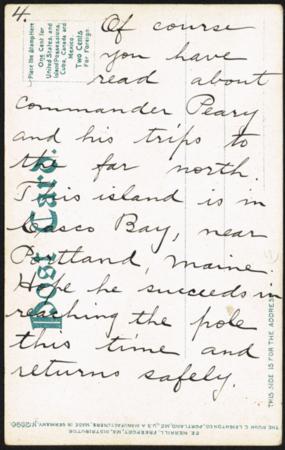 4.
Of course
you have
read about
Commander Peary
and his trips to
the far north.
This island is in
Casco Bay, near
Portland, Maine.
Hope he succeeds in
reaching the pole
this time and
returns safely.
Place the Stamp Here
One Cent for
United States, and
Island Possessions,
Cuba, Canada and
Mexico.
Two Cents
For Foreign.
Post Card.
THIS SIDE IS FOR THE ADDRESS
THE HUGH C. LEIGHTON CO., PORTLAND, ME., U.S.A. MANUFACTURERS, MADE IN GERMANY.
MERRILL, FREEPORT, ME., DISTRIBUTOR